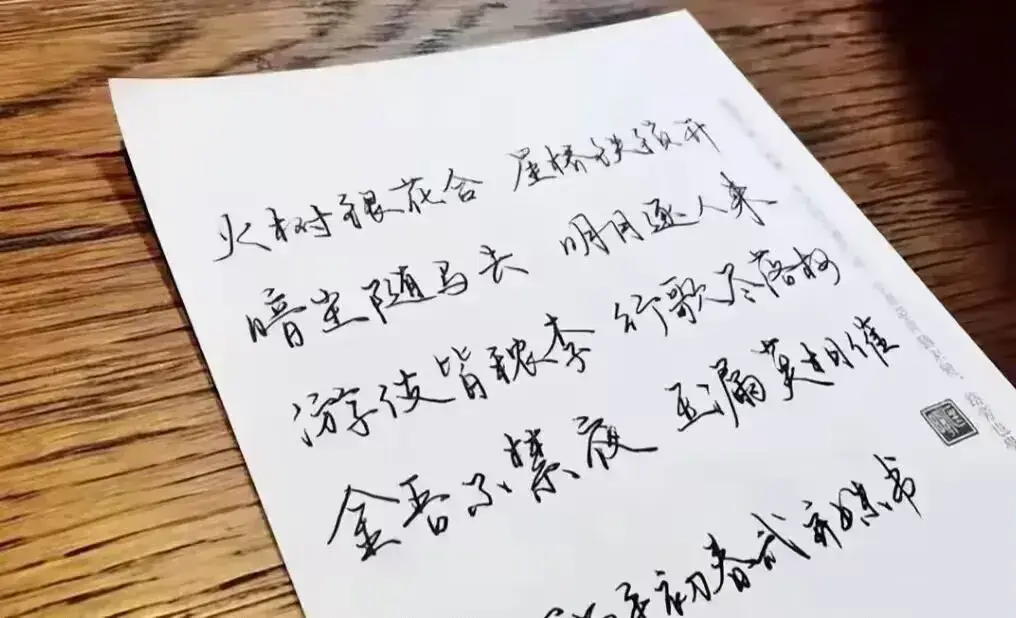 火树银花合 星桥铁锁开
暗尘随马去 明月逐人来
游伎皆秾李 行歌尽落梅
金吾不禁夜 玉漏莫相催
初春试新 书